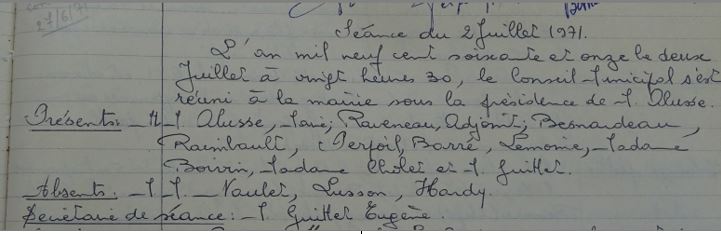 27/6/71
Séance du 2 Juillet 1971.
L'an mil neuf cent soixante et onze le deux
Juillet à vingt heures 30, le Conseil Municipal s'est
réuni à la mairie sous la présidence de M. Alusse.
Présents: M.M. Alusse, Maire; Raveneau, Adjoint; Besnardeau,
Raimbault, Barré, Lemoine, Madame
Boivin, Madame Cholet et M. Guillet.
Absents: M.M. Naulet, Lusson, Hardy.
Secrétaire de séance: M. Guillet Eugène.